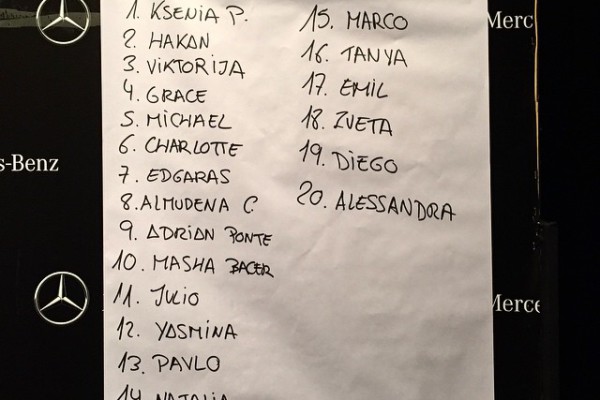 1. KSENIA P.
2. HAKAN
3. VIKTORIJA
4. GRACE
5. MICHAEL
6. CHARLOTTE
7. EDGARAS
8. ALMUDENA C.
9. ADRIAN PONTE
10. MASHA BACER
11. JULIO
12. YASMINA
13. PAVLO
14. NATALIA
15. MARCO
16. TANYA
17. EMIL
18. ZVETA
19. DIEGO
20. ALESSANDRA
s-Benz
Merc
Merce